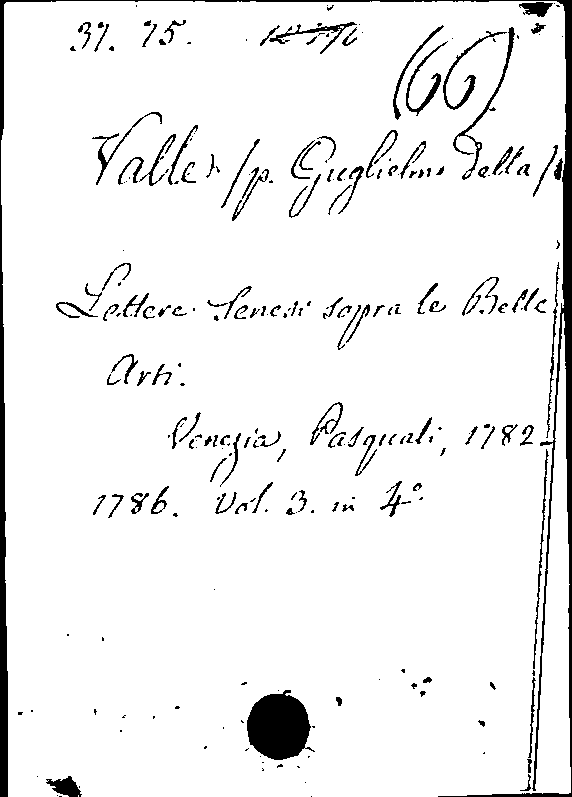 37. 75.
(66)
Valle /p. Guglielmo Della/
Lettere Senesi sopra le Belle
Arti.
Venezia, Pasquali, 1782-
1786. Vol. 3. in 4°